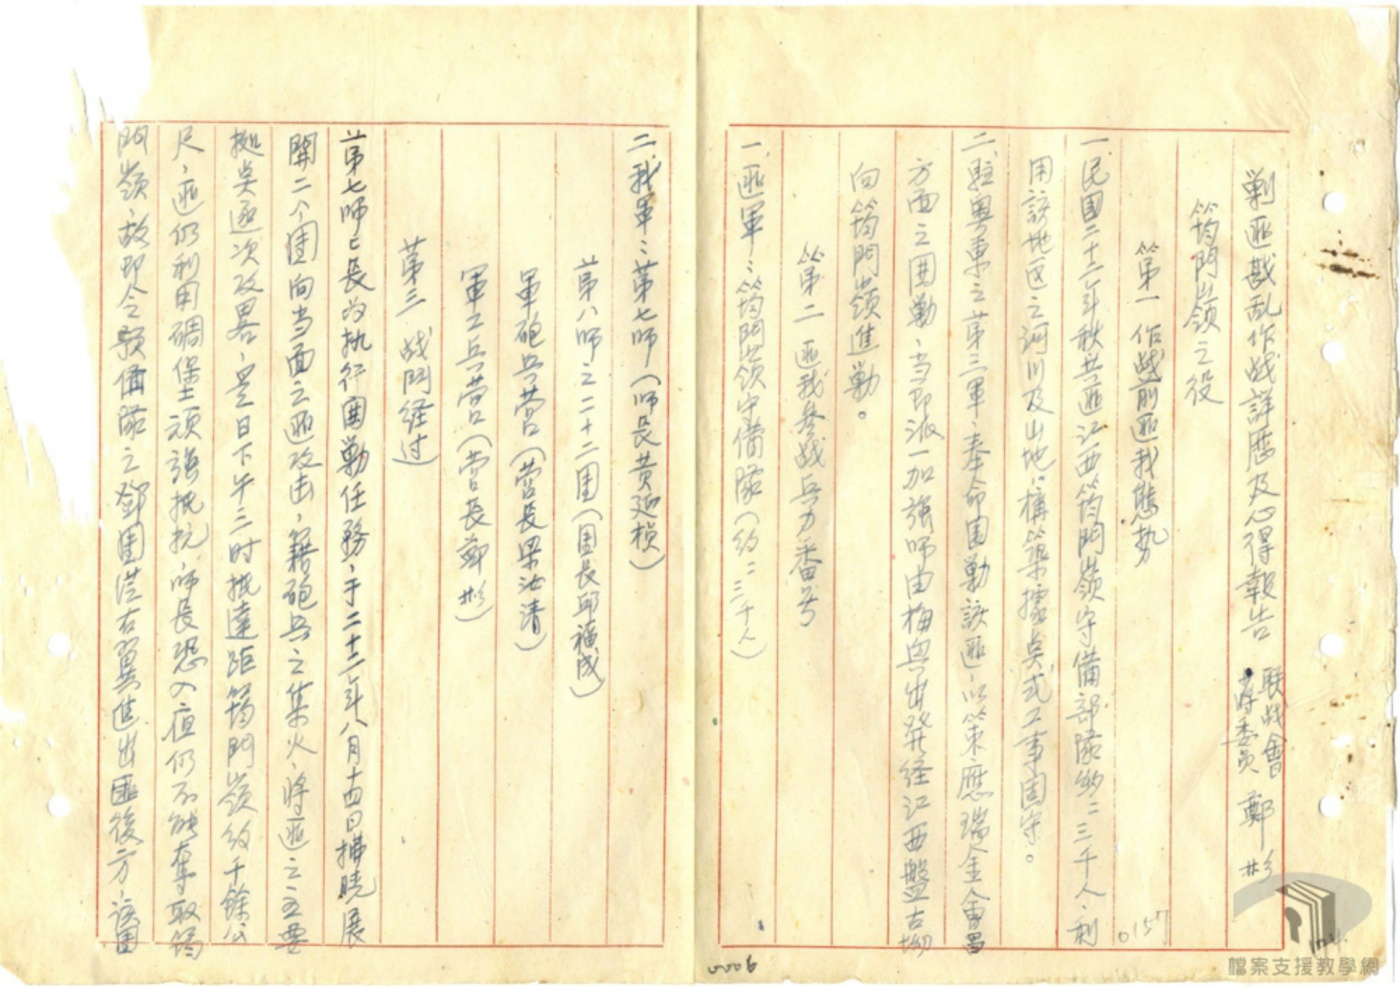 剿匪戡乱作战詳歷及心得報告 联战會蔣委員 鄭彬
筠門嶺之役
第一 作战前匪我態势
一、民国二十二年秋共匪江西筠門嶺守備部隊約二三千人、利
用該地区之河川及山地、構築據点式工事固守。
二、駐粤東之第三軍、奉命围勦該匪、以策應瑞金會昌
方面之围勦、当即派一加強師由梅縣出発経江西盤古坳
向筠門嶺進勦。
第二 匪我參战兵力番号
一、匪軍：筠門嶺守備隊（約二三千人）
二、我軍：第七師（師長黄延楨）
第八師之二十二团（团長邱福成）
軍砲兵营（营長梁汝清）
軍工兵营（营長鄭彬）
第三 战鬥経过
第七師師長為执行围勦任務、于二十二年八月十四日拂曉展
開二个团向当面之匪攻击、藉砲兵之集火、将匪之主要
據点逐次攻畧、是日下午三时抵達距筠門嶺約千餘公
尺、匪仍利用碉堡頑強抵抗、師長恐入夜仍不能奪取筠
門嶺、故即令預備隊之鄧团從右翼進出匪後方、該团
0157
0006
檔案支援教學網